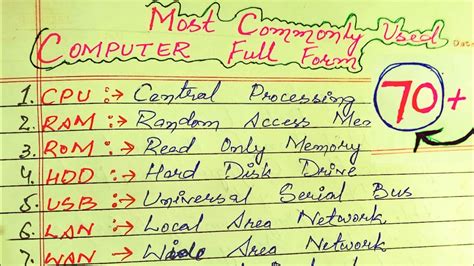 Most Commonly Used
COMPUTER Full Form
70+
1. CPU :→ Central Processing
2. RAM :→ Random Access
3. ROM :→ Read Only Memory
4. HDD :→ Hard Disk Drive
5. USB :→ Universal Serial Bus
6. LAN :→ Local Area Network
7. WAN :→ Wide Area Network